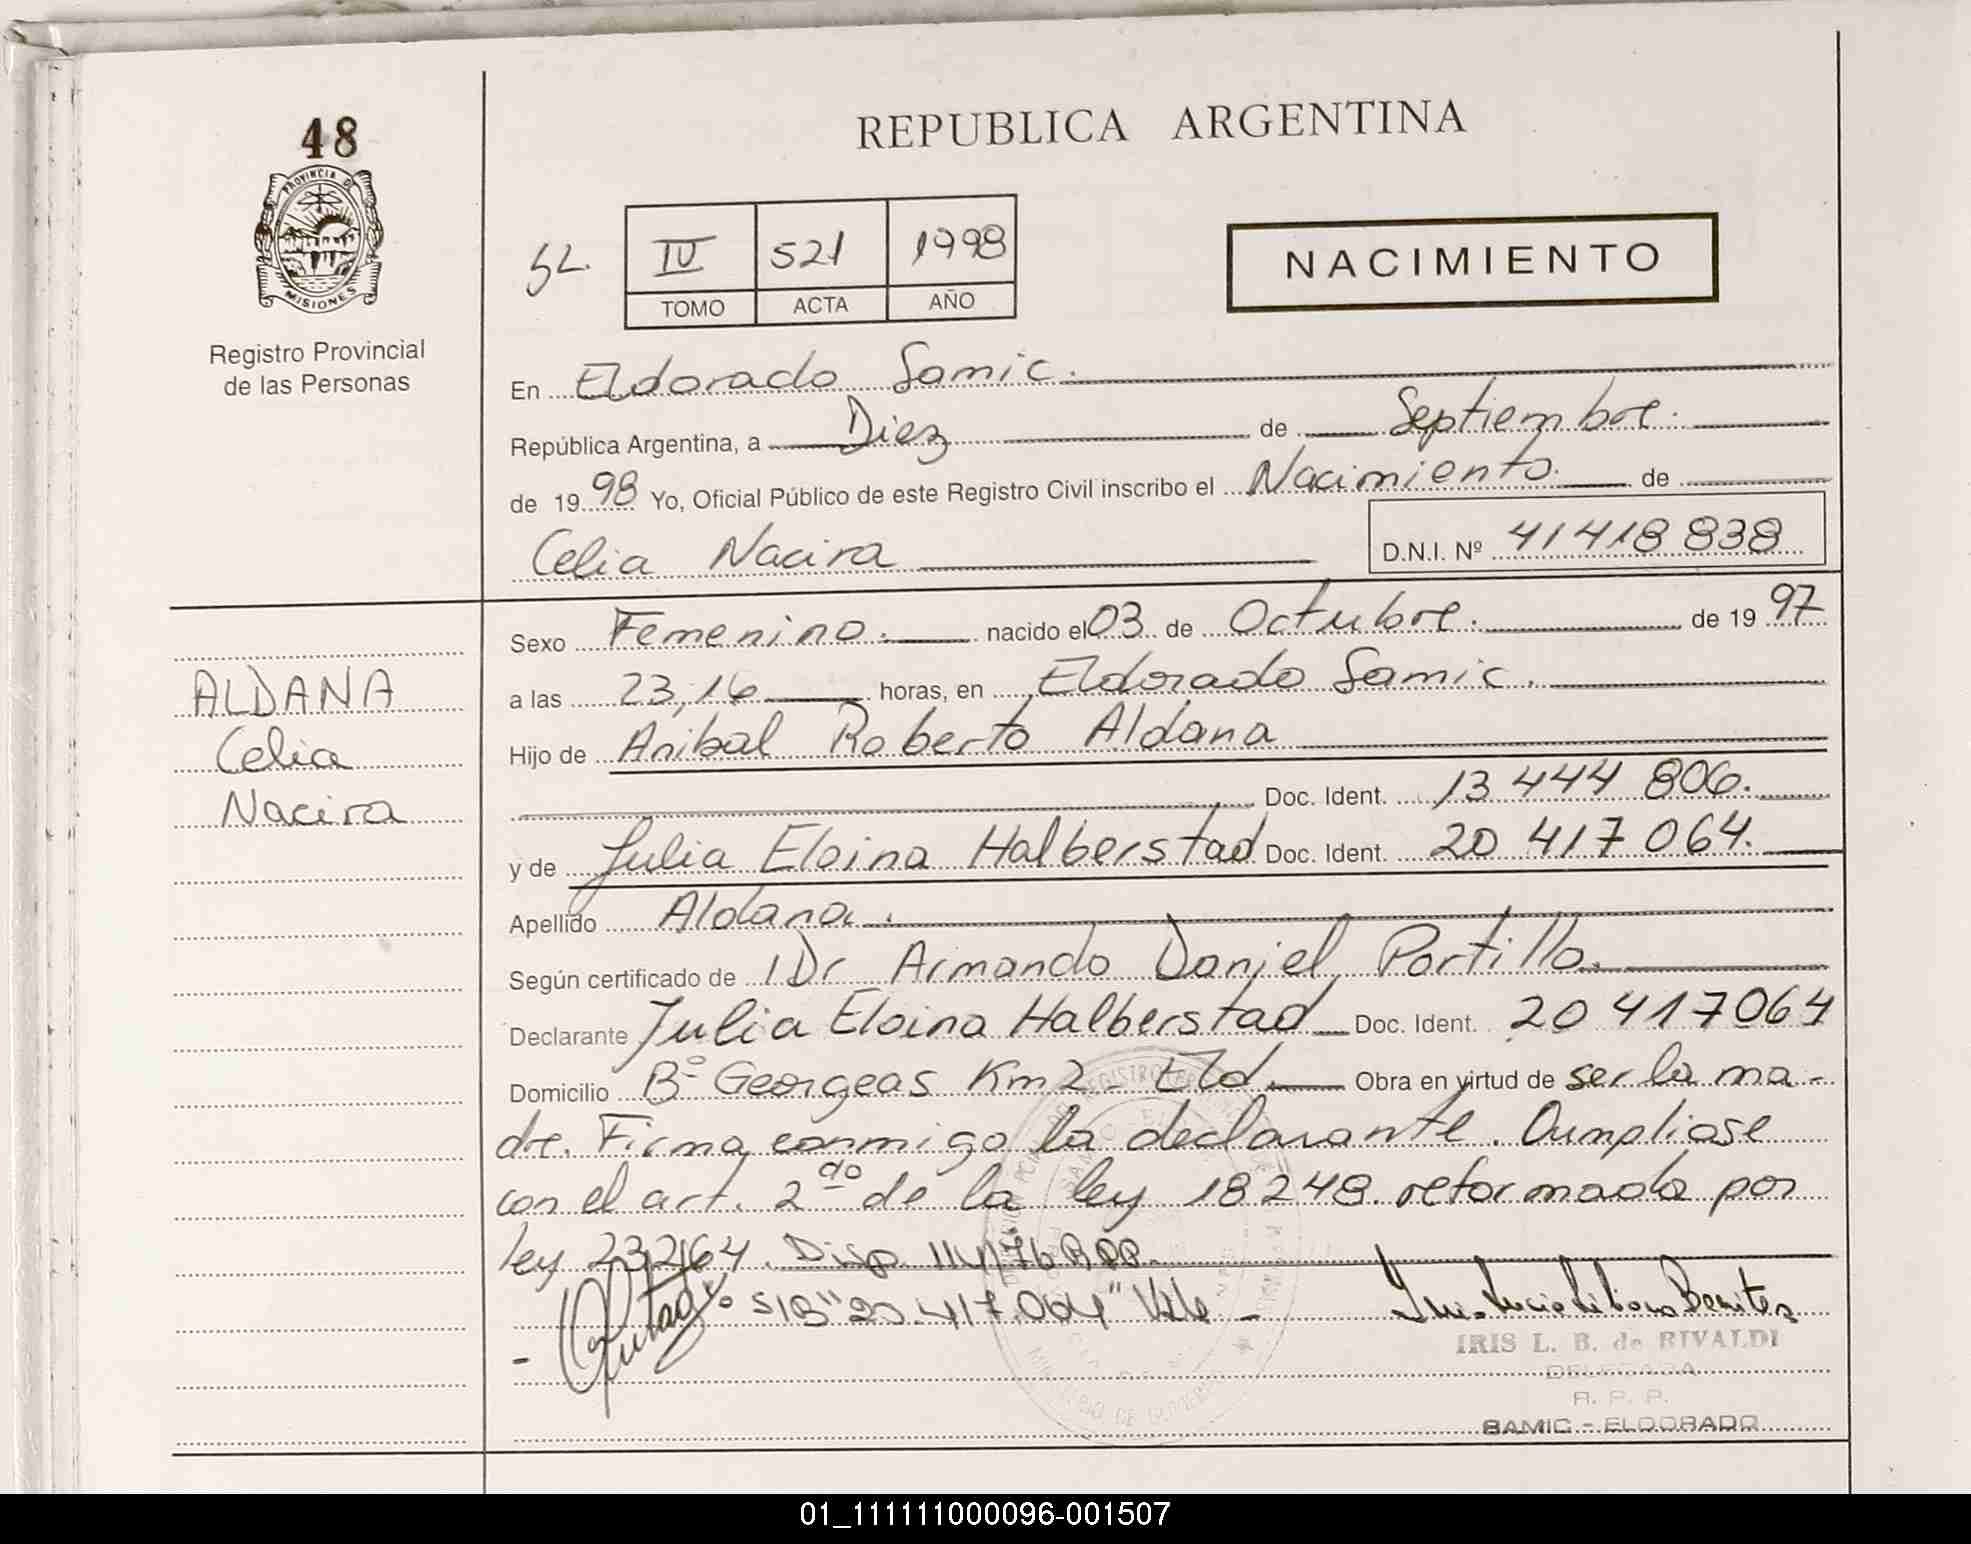 48
PROVINCIA DE
MISIONES
Registro Provincial
de las Personas
REPUBLICA ARGENTINA
IV 521 1998
TOMO ACTA AÑO
NACIMIENTO
En Eldorado Samic.
República Argentina, a Diez de Septiembre.
de 1998 Yo, Oficial Público de este Registro Civil inscribo el Nacimiento. de
Celia Nacira D.N.I. Nº 41418838
ALDANA
Celia
Nacira
Sexo Femenino. nacido el 03 de Octubre. de 1997
a las 23,16 horas, en Eldorado Samic.
Hijo de Anibal Roberto Aldana
Doc. Ident. 13 444 806.
y de Julia Eloina Halberstad Doc. Ident. 20 417 064.
Apellido Aldana.
Según certificado de Dr Armando Daniel Portillo.
Declarante Julia Eloina Halberstad Doc. Ident. 20 417064
Domicilio Bº Georgeas Km 2 - Eld. Obra en virtud de ser la ma-
dre. Firma conmigo la declarante. Cumpliose
con el art. 2do de la ley 18248 reformada por
ley 23264. Disp. 114/76 RPP.
S/B "20.417.064" Vale -
IRIS L. B. de RIVALDI
DELEGADA
R. P. P.
SAMIC - ELDORADO
01_111111000096-001507